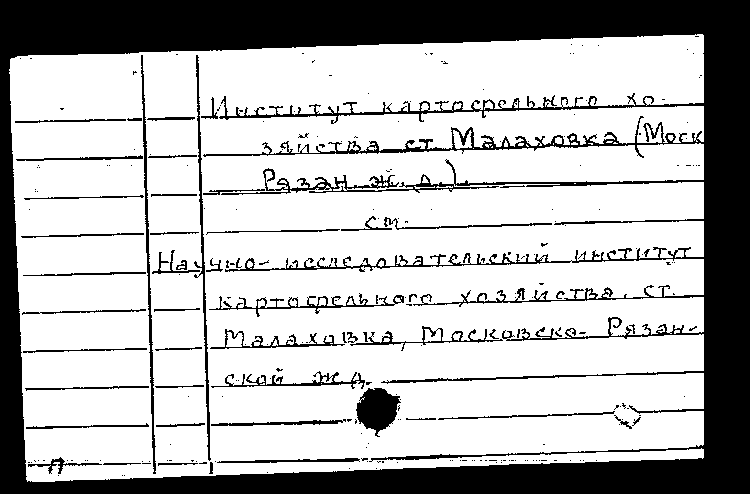 Институт картофельного хо-
зяйства ст. Малаховка (Моск
Рязан. ж. д.).
см.
Научно-исследовательский институт
картофельного хозяйства. ст.
Малаховка, Московско-Рязан-
ской ж д.
П